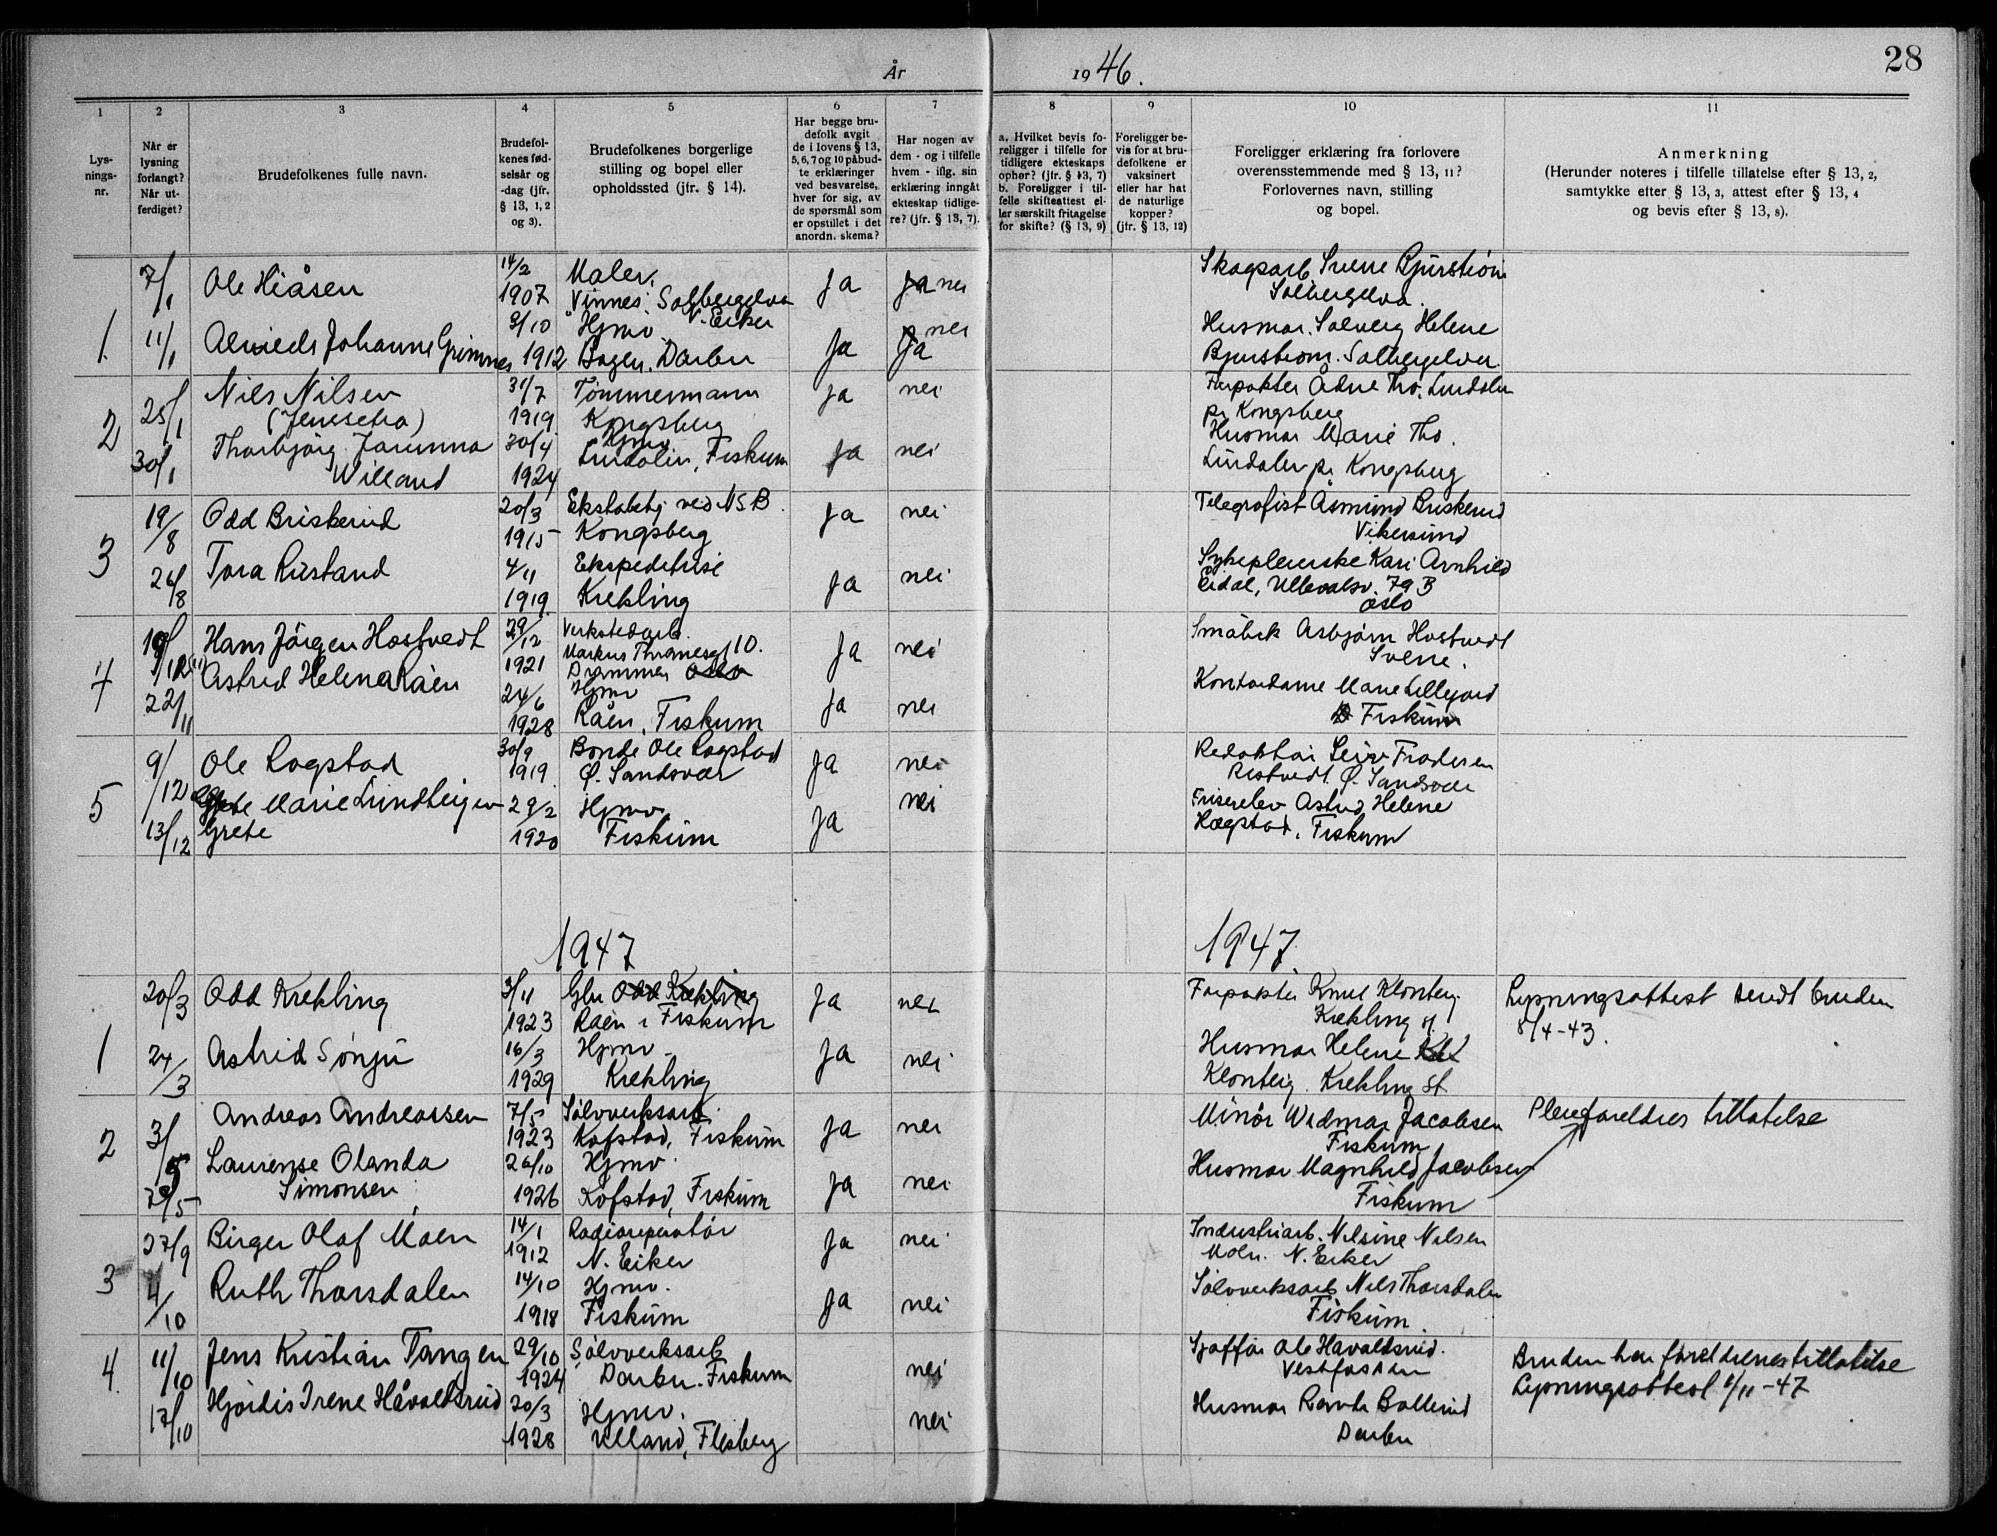 28
År 1946.
1 2 3 4 5 6 7 8 9 10 11
Lys-
nings-
nr.
Når er
lysning
forlangt?
Når ut-
ferdiget?
Brudefolkenes fulle navn.
Brudefol-
kenes fød-
selsår og
-dag (jfr.
§ 13, 1, 2
og 3).
Brudefolkenes borgerlige
stilling og bopel eller
opholdssted (jfr. § 14).
Har begge bru-
defolk avgit
de i lovens § 13,
5, 6, 7 og 10 påbud-
te erklæringer
ved besvarelse,
hver for sig, av
de spørsmål som
er opstillet i det
anordn. skema?
Har nogen av
dem - og i tilfelle
hvem - iflg. sin
erklæring inngått
ekteskap tidlige-
re? (jfr. § 13, 7).
a. Hvilket bevis fo-
religger i tilfelle for
tidligere ekteskaps
ophør? (jfr. § 13, 7)
b. Foreligger i til-
felle skifteattest el-
ler særskilt fritagelse
for skifte? (§ 13, 9)
Foreligger be-
vis for at bru-
defolkene er
vaksinert
eller har hat
de naturlige
kopper?
(jfr. § 13, 12)
Foreligger erklæring fra forlovere
overensstemmende med § 13, 11?
Forlovernes navn, stilling
og bopel.
Anmerkning
(Herunder noteres i tilfelle tillatelse efter § 13, 2,
samtykke efter § 13, 3, attest efter § 13, 4
og bevis efter § 13, 8).
1 7/1 Ole Hiåsen 14/2 1907 Maler, Vinnes, Solbergelva N. Eiker Ja nei Skogsarb. Sverre Bjurstrøm
Solbergelva.
11/1 Johanne Grimnes 3/10 1912 Hjmv. Bogen, Darbu Ja nei Husmor Solveig Helene
Bjurstrøm. Solbergelva
2 25/1 Nils Nilsen 31/7 Tømmermann Ja nei Forpakter Ådne Tho, Lindalen
(Jenesetra) 1919 Kongsberg pr Kongsberg
30/1 Thorbjørg Jorunna 30/4 Hjmv. Ja nei Husmor Marie Tho.
Willand 1924 Lindalen, Fiskum Lindalen pr. Kongsberg
3 19/8 Odd Briskerud 20/3 Ekstrabetj ved NSB Ja nei Telegrafist Åsmund Briskerud
1915 Kongsberg Vikersund
26/8 Tora Rustand 4/11 Ekspeditrise Ja nei Sykepleierske Kari Arnhild
1919 Krekling Eidal, Ullevalsv. 79 B
Oslo
4 Hans Jörgen Hostvedt 29/12 Verkstedarb. Ja nei Småbrk Asbjørn Hostvedt
1921 Markus Thranesg 10. Drammen Svene.
22/11 Astrid Helene Råen 24/6 Hjmv Ja nei Kontordame Marie Lillejord
1928 Råen, Fiskum Fiskum
5 9/12 Ole Rogstad 30/9 Bonde Ole Rogstad Ja nei Redaktør Leiv Frodesen
1919 Ø. Sandsvær Restvedt Ø. Sandsvær
13/12 Marie Lundteigen 29/2 Hjmv. Ja nei Friserelev Astrid Helene
Grete 1920 Fiskum Hægstad, Fiskum
1947 1947
1 20/3 Odd Krekling 3/11 Gbr Odd Krekling Ja nei Forpakter Knut Klonteig. Lysningsattest sendt bruden
1923 Råen i Fiskum Krekling st 8/4-43.
24/3 Astrid Sønju 16/3 Hjmv Ja nei Husmor Helene
1929 Krekling Klonteig Krekling St
2 3/5 Andreas Andreassen 7/5 Sølvverksarb. Ja nei Minør Widmar Jacobsen Pleieforeldres tillatelse
1923 Kofstad, Fiskum Fiskum
29/5 Laurense Olanda 26/10 Hjmv. Ja nei Husmor Magnhild Jacobsen
Simonsen 1926 Kofstad, Fiskum Fiskum
3 27/9 Birger Olaf Moen 14/1 Radioreparatør Ja nei Industriarb. Nilsine Nilsen
1912 N. Eiker Moen. N. Eiker
4/10 Ruth Thorsdalen 14/10 Hjmv. Ja nei Sølvverksarb Nils Thorsdalen
1918 Fiskum Fiskum
4 11/10 Jens Kristian Tangen 29/10 Sølvverksarb nei Sjaffør Ole Håvaldsrud. Bruden har foreldrenes tillatelse
1924 Darbu. Fiskum Vestfossen Lysningsattest 1/11-47
17/10 Hjördis Irene Håvaldsrud 20/3 Hjmv. nei Husmor Borth Bollerud
1928 Ulland, Flesberg Darbu